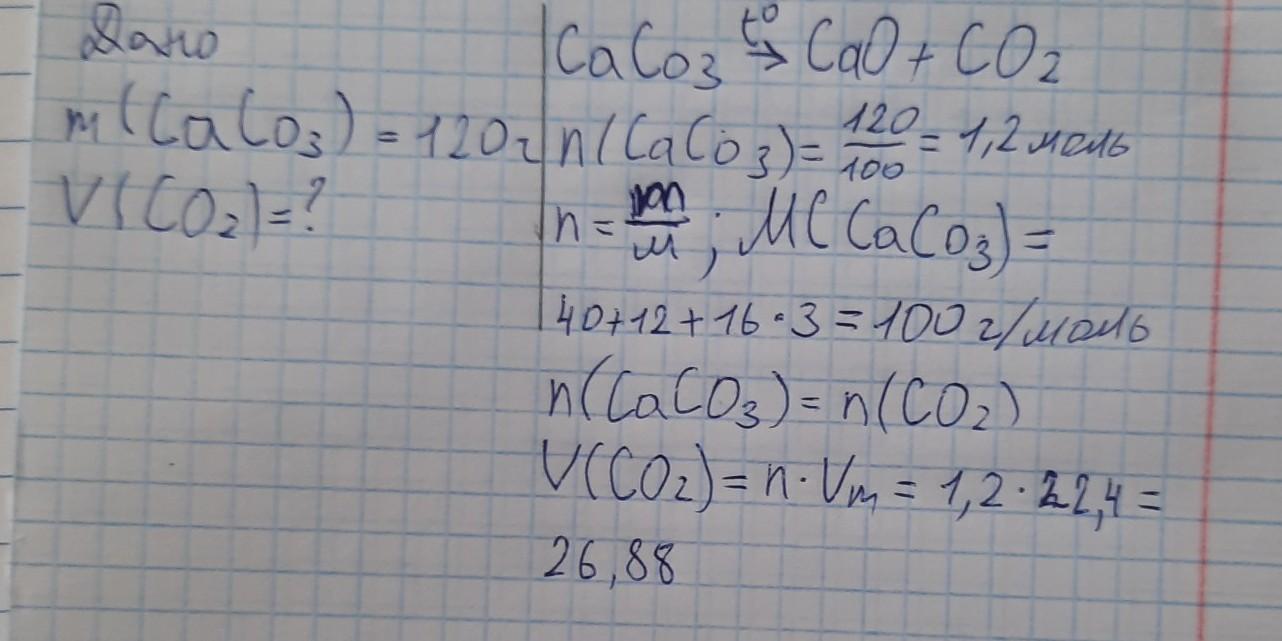 Дано
m(CaCO3) = 120г
V(CO2)=?
CaCO3 t° → CaO + CO2
n(CaCO3) = 120/100 = 1,2 моль
n = m/M ; M(CaCO3) =
40+12+16·3 = 100 г/моль
n(CaCO3) = n(CO2)
V(CO2) = n·Vm = 1,2·22,4 =
26,88